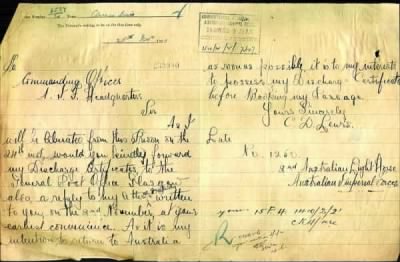 The Prisoner's writing to be on this line only.
To
Commanding Officer
A. I. F. Headquarters
Sir
As I
will be liberated from this Prison on the
inst, would you kindly forward
my Discharge Certificates to the
General Post Office Glasgow
also a reply to my letter written
to you on the 2nd November, at your
earliest convenience. As it is my
intention to return to Australia
as soon as possible it is to my interests
to possess my Discharge Certificate
before Booking my Passage.
Yours Sincerely
C. D. Lewis.
Late
No. 1260
2nd Australian Light Horse
Australian Imperial Forces